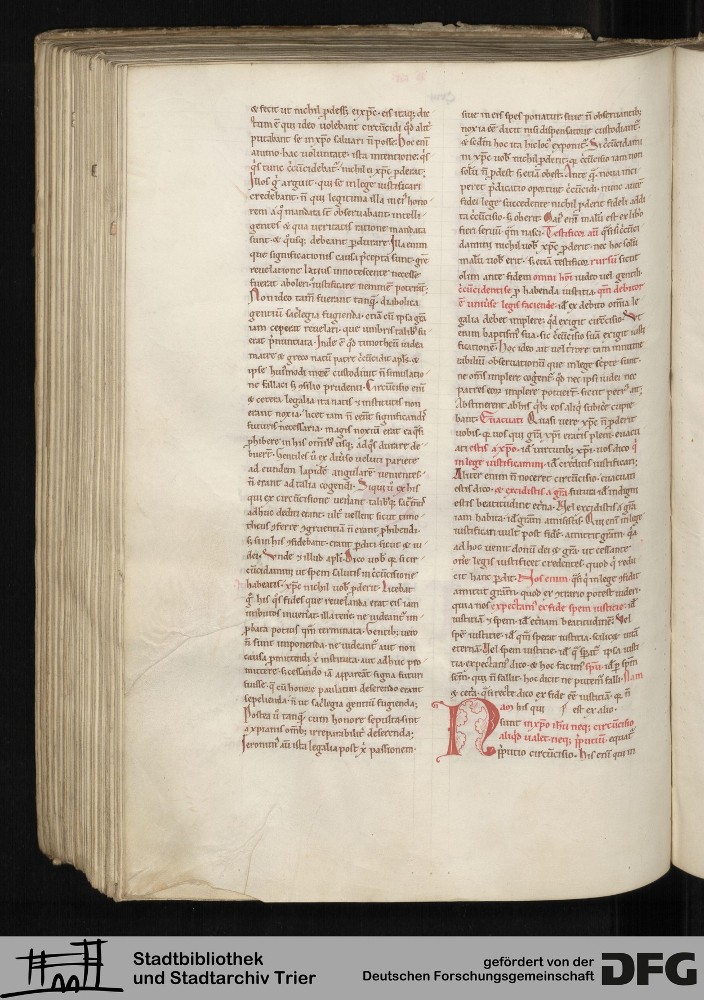 & fecit ut nichil p̄dess& ei xp̄c. eis itaq; dic
tum ē qui ideo uolebant circūcidi qd̄ alit̄
putabant se in xp̄o saluari n̄ posse. Hoc eni
animo. hac uoluntate. ista intentione. qͥsqͥs
tunc ccūcidebat̄. nichil ei xp̄c p̄derat.
Illos gͦ arguit. qui se in lege iustificari
credebant. n̄ qui legitima illa in ei honorem
a qͦ mandata st̄ obseruabant.
gentes & qua ueritatis ratione mandata
sunt. & qͦusq; debeant p̄durare. Illa enim
que significationis causa p̄cepta sunt. grē
reuelatione latius innotescente necesse
fuerat aboleri. iustificare neminē poterāt.
Non ideo tam̄ fuerant tanqͣ diabolica
gentiū sac̄legia fugienda. etiā cū ipsa grā
iam ceperit reuelari. que umbris talibꝰ fuerat
p̄nunciata. Inde ē qd̄ timotheū iudea
matre & greco natū patre ccūcidit apl̄s. &
ipse huiꝰmodi custodiuit n̄ simulatione
fallaci s; consilio prudenti. Circūcisio eni
& cetera legalia ita natis & institutis non
erant noxia. licet iam n̄ eēnt significandis
futuris necessaria. magis noxiū erat ea qͣsi
p̄hibere in his omībꝰ usq; ad qͦs durare debuerāt.
Gentiles ū ex diuso ueluti pariete
ad eundem lapidē angularē uenientes.
n̄ erant ad talia cogendi. Siqui ū ex his
qui ex circūcisione uenerant talibꝰqͣ sacm̄tis
adhuc dediti erant. ult̄ uellent sicut timotheus
cōferre cōgruentiā n̄ erant p̄hibendi.
s; si in his cōfidebant. erant p̄diti sicut & iudei.
Unde & illud apl̄i. Dico uob̄ qͣ si circūcidamini
ut spem salutis in ccūcisione
habeatis. xp̄c nichil uob̄ p̄derit. Licebat
gͦ his qͦs fides que reuelanda erat eis iam
imbutos inuenerat. illa retine. ne uideant̄ improbata
potius qͣm terminata. Gentibꝰ uero
n̄ sunt imponenda. ne uideant̄ aut non
causa p̄mittendi x̄ instituta. aut adhuc promittere.
s; cessando iā appareāt signa futuri
fuisse. qͥ cū honore paulatim deserendo erant
sepelienda. n̄ ut sac̄legia gentiū fugienda.
Postea ū tanqͣ cum honore sepulta sint
a xp̄ianis omībꝰ irreparabilit̄ deserenda.
Ieronimꝰ aū ista legalia post x̄ passionem
siue in eis spes ponatur. siue n̄ obseruantibꝰ
noxia eē dicit. nisi dispensatione custodiant̄.
& sedm̄ hoc ita hic loc̄ exponit̄. Si ccūcidamini
xp̄c uob̄ nichil p̄derit. qͣ ccūcisio iam non
solū n̄ p̄dest. s; etiā obest. Ante qͣ noua inciperet
p̄dicatio oportuit ccūcidi. nunc aūt
fidei lege succedente nichil p̄derit fideli addita
ccūcisio. s; oberit.
fieri seruū. qͣm nasci. Testificor aū qͥ si ccūcidamini
nichil uob̄ xp̄c p̄derit. nec hoc solū
malū uob̄ erit. s; etiā testificor rursū sicut
olim ante fidem omni hōi iudeo uel gentili.
ccūcidenti se p̄ habenda iusticia. qm̄ debitor
ē uniuse legis faciende. id ex debito om̄ia legalia
debet implere. qd̄ exigit circūcisio. Ut
enim baptismꝰ sua. sic ccūcisio sua exigit iustificatione.
Hoc ideo ait uel t̄rore tam innumerabiliū
obseruationū que in lege sc̄pte sunt.
ne om̄s implere coger̄. qͦ nec ipsi iudei nec
patres eorū implere potuerāt. sicut petrꝰ ait.
Abstinerent ab his qͥbꝰ eos aliqͥ subicere cupiebant.
Euacuati. Quasi uere xp̄c n̄ p̄derit
uobis. qͣ uos qui grā xp̄i eratis pleni. euacuati
estis a xp̄o. id uirtutibꝰ xp̄i. uos dico qͥ
in lege iustificamini. id creditis iustificari.
Aliter enim n̄ noceret circūcisio. euacuati
estis dico. & excidistis a grā. futura. id indigni
estis beatitudine et̄na. Vel excidistis a grā
iam habita. id grām amisistis. Qm̄ eni in lege
iustificari uult post fidē. amittit grām. qͣ
ad hoc uenit donū dei & grā. ut cessante
on̄e legis iustificet credentes. quod qͥ reducit
hanc p̄dit. Nos enim. qͥ qͥ in lege cōfidit
amittit grām. quod ex cōtrario potest uideri.
quia nos expectamꝰ ex fide spem iusticie. id
iusticiā & spem. id et̄nam beatitudinē. Vel
spē iusticie. id qͣm sperat iusticia. scilicet uitā
eternā. Vel spem iusticie. id qͣ sperat̄ ipsa iusticia.
expectatis dico. & hoc facimꝰ spū. id p̄ spm̄
scm̄. qui n̄ fallit. hoc dicit ne putem̄ falli. Nam
& cetera. qͣsi recte dico ex fide eē iusticiā. qͣ n̄
est ex alio.
Nam his qui
sunt in xp̄o ihū neq; circūcisio
aliqͥd ualet. neq; p̄putiū. equat̄
p̄putio circūcisio. His eni qui in
Stadtbibliothek
und Stadtarchiv Trier
gefördert von der
Deutschen Forschungsgemeinschaft
DFG